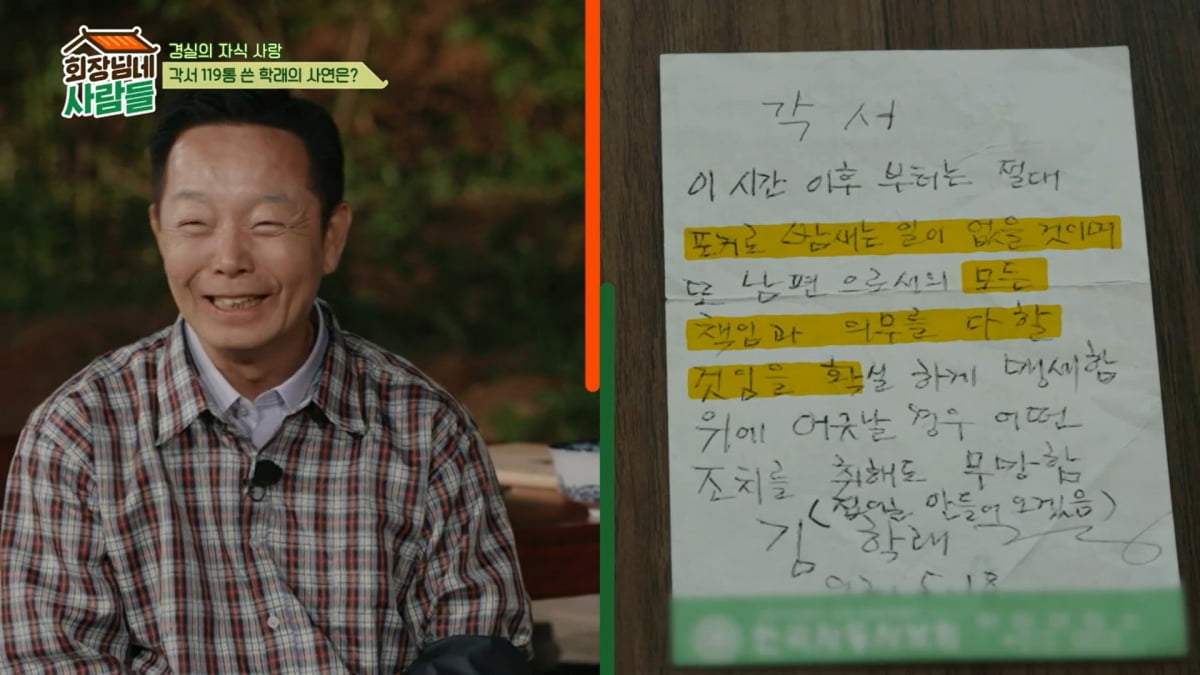 회장님네
사람들
경실의 자식 사랑
각서 119통 쓴 학래의 사연은?
각 서
이 시간 이후 부터는 절대
포커로 밤새는 일이 없을 것이며
또 남편 으로서의 모든
책임과 의무를 다 할
것임을 확실 하게 맹세함
위에 어긋날 경우 어떤
조치를 취해도 무방함
김 학래